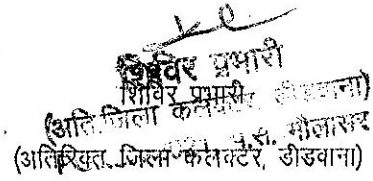 शिविर प्रभारी
शिविर प्रभारी
(अति. जिला कलक्टर डीडवाना)
पं.स. मौलासर
(अतिरिक्त जिला कलेक्टर, डीडवाना)